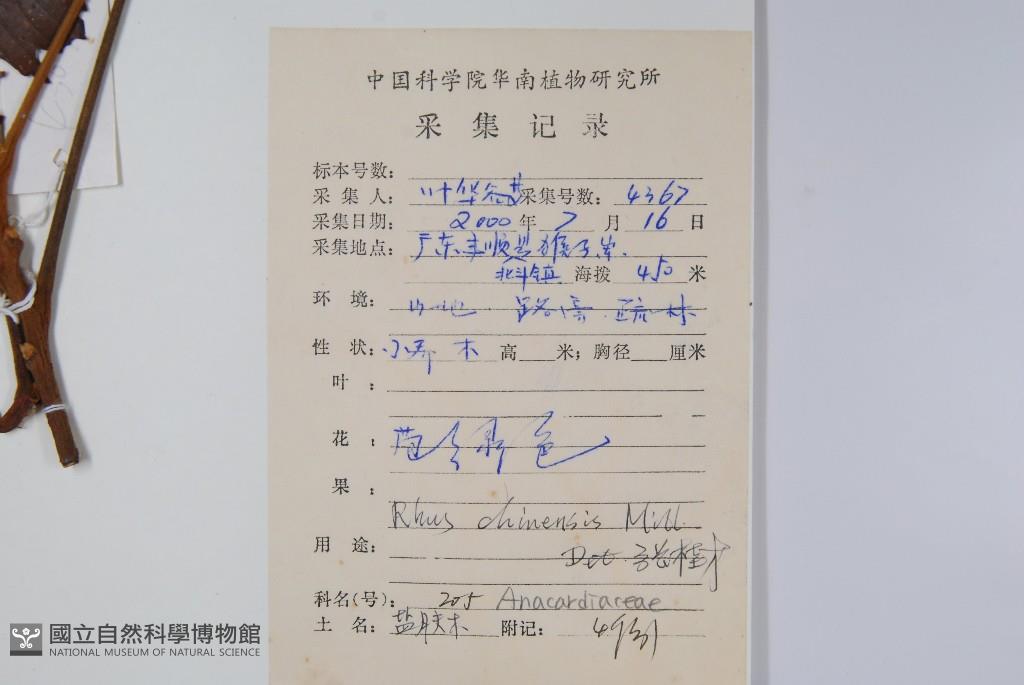 中国科学院华南植物研究所
采集记录
标本号数：
采集人：叶华谷 采集号数：4367
采集日期：2000年7月16日
采集地点：广东丰顺县猴子岽.
北斗镇 海拨 450 米
环境：山地 路旁 疏林
性状：小乔木 高 米；胸径 厘米
叶：
花：色
果：
Rhus chinensis Mill
用途：
Det. 桂才
科名(号)：205 Anacardiaceae
土名：盐肤木 附记：4份
國立自然科學博物館
NATIONAL MUSEUM OF NATURAL SCIENCE